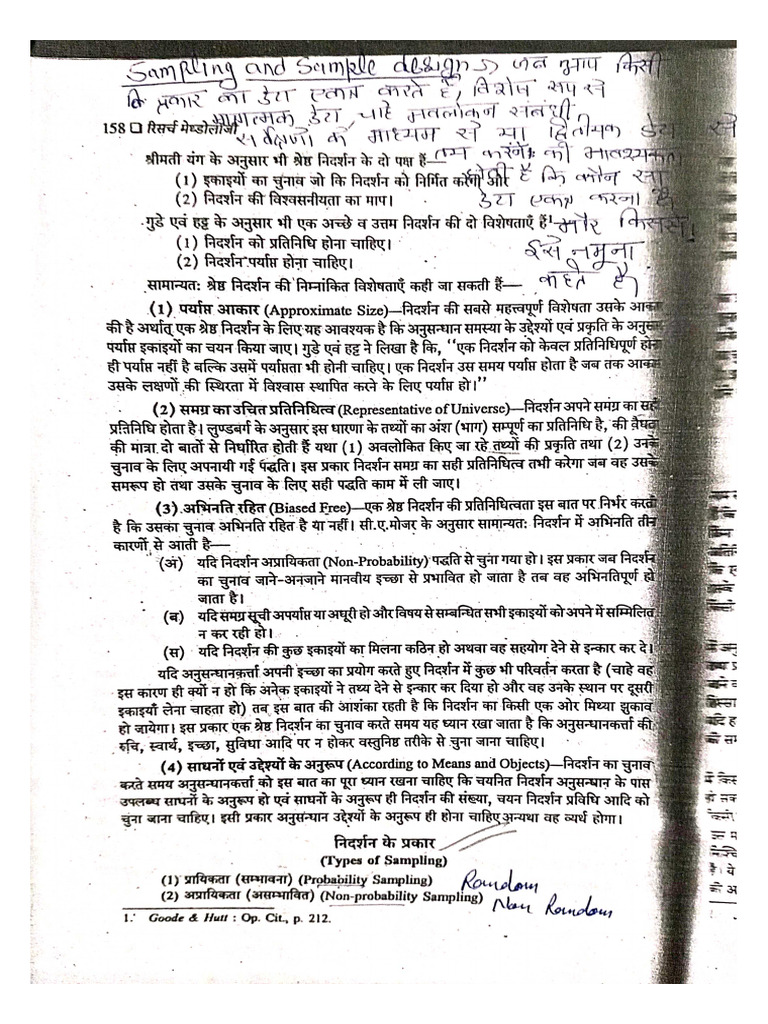 Sampling and Sample design → जब आप किसी
कि प्रकार का डेटा एकत्र करते हैं, विशेष रूप से
मागत्मक डेटा, चाहे अवलोकन संबंधी
158 रिसर्च मेथ्डोलॉजी
सर्वेक्षणों के माध्यम से या द्वितीयक डेटा से
श्रीमती यंग के अनुसार भी श्रेष्ठ निदर्शन के दो पक्ष हैं—
तय करने की आवश्यकता
(1) इकाइयों का चुनाव जो कि निदर्शन को निर्मित करेंगी और
होती है कि कौन सा
(2) निदर्शन की विश्वसनीयता का माप।
डेटा एकत्र करना है
गुडे एवं हट्ट के अनुसार भी एक अच्छे व उत्तम निदर्शन की दो विशेषताएँ हैं¹—
और किससे।
(1) निदर्शन को प्रतिनिधि होना चाहिए।
इसे नमूना
(2) निदर्शन पर्याप्त होना चाहिए।
कहते हैं।
सामान्यतः श्रेष्ठ निदर्शन की निम्नांकित विशेषताएँ कही जा सकती हैं—
(1) पर्याप्त आकार (Approximate Size)—निदर्शन की सबसे महत्त्वपूर्ण विशेषता उसके आका
की है अर्थात् एक श्रेष्ठ निदर्शन के लिए यह आवश्यक है कि अनुसन्धान समस्या के उद्देश्यों एवं प्रकृति के अनुसा
पर्याप्त इकाइयों का चयन किया जाए। गुडे एवं हट्ट ने लिखा है कि, "एक निदर्शन को केवल प्रतिनिधिपूर्ण होन
ही पर्याप्त नहीं है बल्कि उसमें पर्याप्तता भी होनी चाहिए। एक निदर्शन उस समय पर्याप्त होता है जब तक आका
उसके लक्षणों की स्थिरता में विश्वास स्थापित करने के लिए पर्याप्त हो।"
(2) समग्र का उचित प्रतिनिधित्व (Representative of Universe)—निदर्शन अपने समग्र का सह
प्रतिनिधि होता है। लुण्डबर्ग के अनुसार इस धारणा के तथ्यों का अंश (भाग) सम्पूर्ण का प्रतिनिधि है, की वैधत
की मात्रा दो बातों से निर्धारित होती हैं यथा (1) अवलोकित किए जा रहे तथ्यों की प्रकृति तथा (2) उनके
चुनाव के लिए अपनायी गई पद्धति। इस प्रकार निदर्शन समग्र का सही प्रतिनिधित्व तभी करेगा जब वह उसके
समरूप हो तथा उसके चुनाव के लिए सही पद्धति काम में ली जाए।
(3) अभिनति रहित (Biased Free)—एक श्रेष्ठ निदर्शन की प्रतिनिधित्वता इस बात पर निर्भर करती
है कि उसका चुनाव अभिनति रहित है या नहीं। सी.ए.मोजर के अनुसार सामान्यतः निदर्शन में अभिनति तीन
कारणों से आती है—
(अ) यदि निदर्शन अप्रायिकता (Non-Probability) पद्धति से चुना गया हो। इस प्रकार जब निदर्शन
का चुनाव जाने-अनजाने मानवीय इच्छा से प्रभावित हो जाता है तब वह अभिनतिपूर्ण हो
जाता है।
(ब) यदि समग्र सूची अपर्याप्त या अधूरी हो और विषय से सम्बन्धित सभी इकाइयों को अपने में सम्मिलित
न कर रही हो।
(स) यदि निदर्शन की कुछ इकाइयों का मिलना कठिन हो अथवा वह सहयोग देने से इन्कार कर दे।
यदि अनुसन्धानकर्त्ता अपनी इच्छा का प्रयोग करते हुए निदर्शन में कुछ भी परिवर्तन करता है (चाहे वह
इस कारण ही क्यों न हो कि अनेक इकाइयों ने तथ्य देने से इन्कार कर दिया हो और वह उनके स्थान पर दूसरी
इकाइयाँ लेना चाहता हो) तब इस बात की आशंका रहती है कि निदर्शन का किसी एक ओर मिथ्या झुकाव
हो जायेगा। इस प्रकार एक श्रेष्ठ निदर्शन का चुनाव करते समय यह ध्यान रखा जाता है कि अनुसन्धानकर्त्ता की
रुचि, स्वार्थ, इच्छा, सुविधा आदि पर न होकर वस्तुनिष्ठ तरीके से चुना जाना चाहिए।
(4) साधनों एवं उद्देश्यों के अनुरूप (According to Means and Objects)—निदर्शन का चुनाव
करते समय अनुसन्धानकर्त्ता को इस बात का पूरा ध्यान रखना चाहिए कि चयनित निदर्शन अनुसन्धान के पास
उपलब्ध साधनों के अनुरूप हो एवं साधनों के अनुरूप ही निदर्शन की संख्या, चयन निदर्शन प्रविधि आदि को
चुना जाना चाहिए। इसी प्रकार अनुसन्धान उद्देश्यों के अनुरूप ही होना चाहिए अन्यथा वह व्यर्थ होगा।
निदर्शन के प्रकार
(Types of Sampling)
(1) प्रायिकता (सम्भावना) (Probability Sampling) Random
(2) अप्रायिकता (असम्भावित) (Non-probability Sampling) Non Random
1. Goode & Hutt : Op. Cit., p. 212.